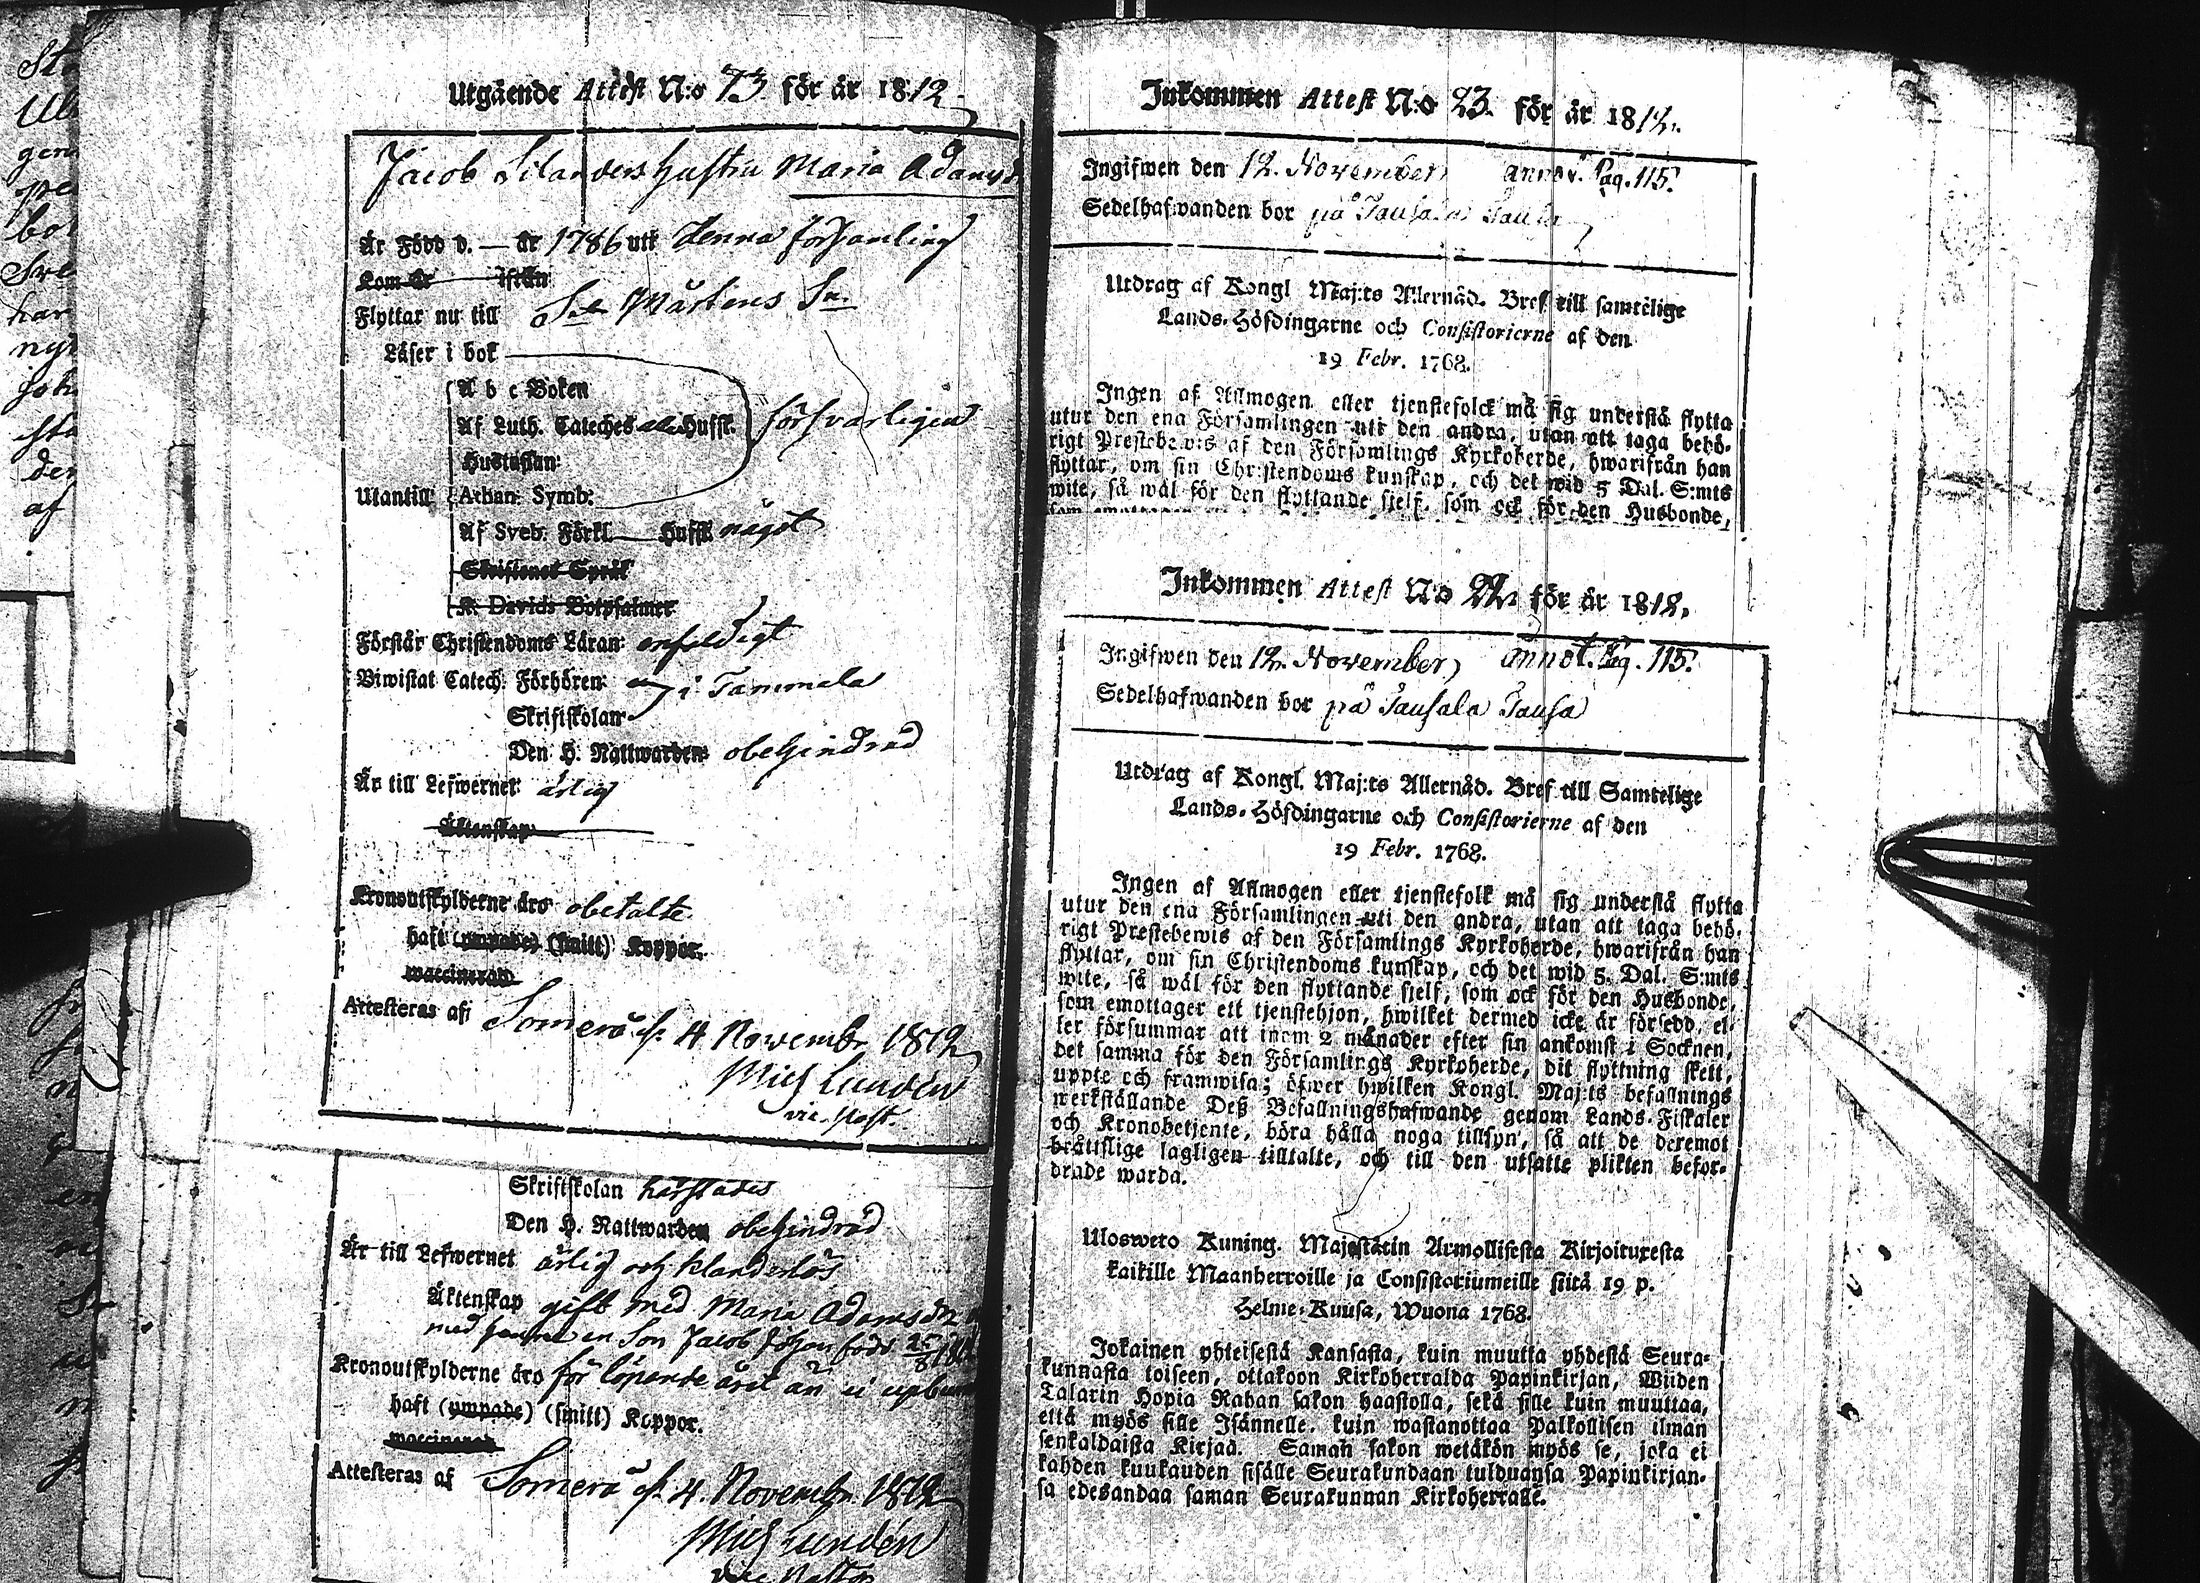 Utgående Attest N:o 73 för år 1812
Jacob Silanders hustru Maria Adamsd
Är Född d. — år 1786 utt denna församling
Kom år ifrån
Flyttar nu till St Mårtens Sn.
Läser i bok
A b c Boken
Af Luth. Cateches Husst. försvarligen
Hustaflan:
Utantill: Athan: Symb:
Af Sveb. Förkl. Husst. något
Skriftenes Språk
K. Davids Botpsalmer
Förstår Christendoms Läran: enfaldigt
Biwistat Catech: Förhören: i Tammela
Skriftskolan
Den H. Nattwarden: obehindrad
Är till Lefwernet: ärlig
Äktenskap:
Kronoutskylderne äro obetalte
haft (ympade) (smitt) Koppor.
waccinerad
Attesteras af: Somero d. 4 Novembr 1812
Mich Lundén
vic. past.
Skriftskolan härstädes
Den H. Nattwarden obehindrad
Är till Lefwernet ärlig och klanderlös
Äktenskap gift med Maria Adamsdr
med henne en Son Jacob född
Kronoutskylderne äro för löpande året än ei
haft (ympade) (smitt) Koppor.
waccinerad
Attesteras af Somero d. 4. Novembr. 1812
Mich Lundén
vic Pastor
Inkommen Attest N:o 23. för år 1812.
Ingifwen den 12. November, annot. Pag. 115.
Sedelhafwanden bor på Jausala Jausa
Utdrag af Kongl Maj:ts Allernåd. Bref till samtelige
Lands-Höfdingarne och Consistorierne af den
19 Febr. 1768.
Ingen af Allmogen eller tjenstefolck må sig understå flytta
utur den ena Församlingen uti den andra, utan att taga behö-
rigt Prestebewis af den Församlings Kyrkoherde, hwarifrån han
flyttar, om sin Christendoms kunskap, och det wid 5 Dal. S:mts
wite, så wäl för den flyttande sjelf, som ock för den Husbonde,
Inkommen Attest N:o 22. för år 1812.
Ingifwen den 12. November, annot. Pag. 115.
Sedelhafwanden bor på Jausala Jausa
Utdrag af Kongl. Maj:ts Allernåd. Bref till Samtelige
Lands-Höfdingarne och Consistorierne af den
19 Febr. 1768.
Ingen af Allmogen eller tjenstefolk må sig understå flytta
utur den ena Församlingen uti den andra, utan att taga behö-
rigt Prestebewis af den Församlings Kyrkoherde, hwarifrån han
flyttar, om sin Christendoms kunskap, och det wid 5. Dal. S:mts
wite, så wäl för den flyttande sjelf, som ock för den Husbonde,
som emottager ett tjenstehjon, hwilket dermed icke är försedd, el-
ler försummar att inom 2 månader efter sin ankomst i Socknen,
det samma för den Församlings Kyrkoherde, dit flyttning skett,
uppte och framwisa; öfwer hwilken Kongl. Maj:ts befallnings
werkställande Deß Befallningshafwande genom Lands-Fiskaler
och Kronobetjente, böra hålla noga tillsyn, så att de deremot
bråttslige lagligen tilltalte, och till den utsatte plikten befor-
drade warda.
Uloswero Kuning. Majestätin Armollisesta Kirjoituxesta
kaikille Maanherroille ja Consistoriumeille siitä 19 p.
Helme-Kuusa, Wuona 1768.
Jokainen yhteisestä Kansasta, kuin muutta yhdestä Seura-
kunnasta toiseen, ottakoon Kirkoherralda Papinkirjan, Wiiden
Talarin Hopia Rahan sakon haastolla, sekä sille kuin muuttaa,
että myös sille Isännelle, kuin wastanottaa Palkollisen ilman
senkaldaista Kirjaa. Saman sakon wetäkön myös se, joka ei
kahden kuukauden sisälle Seurakundaan tulduansa Papinkirjan-
sa edesandaa saman Seurakunnan Kirkoherralle.